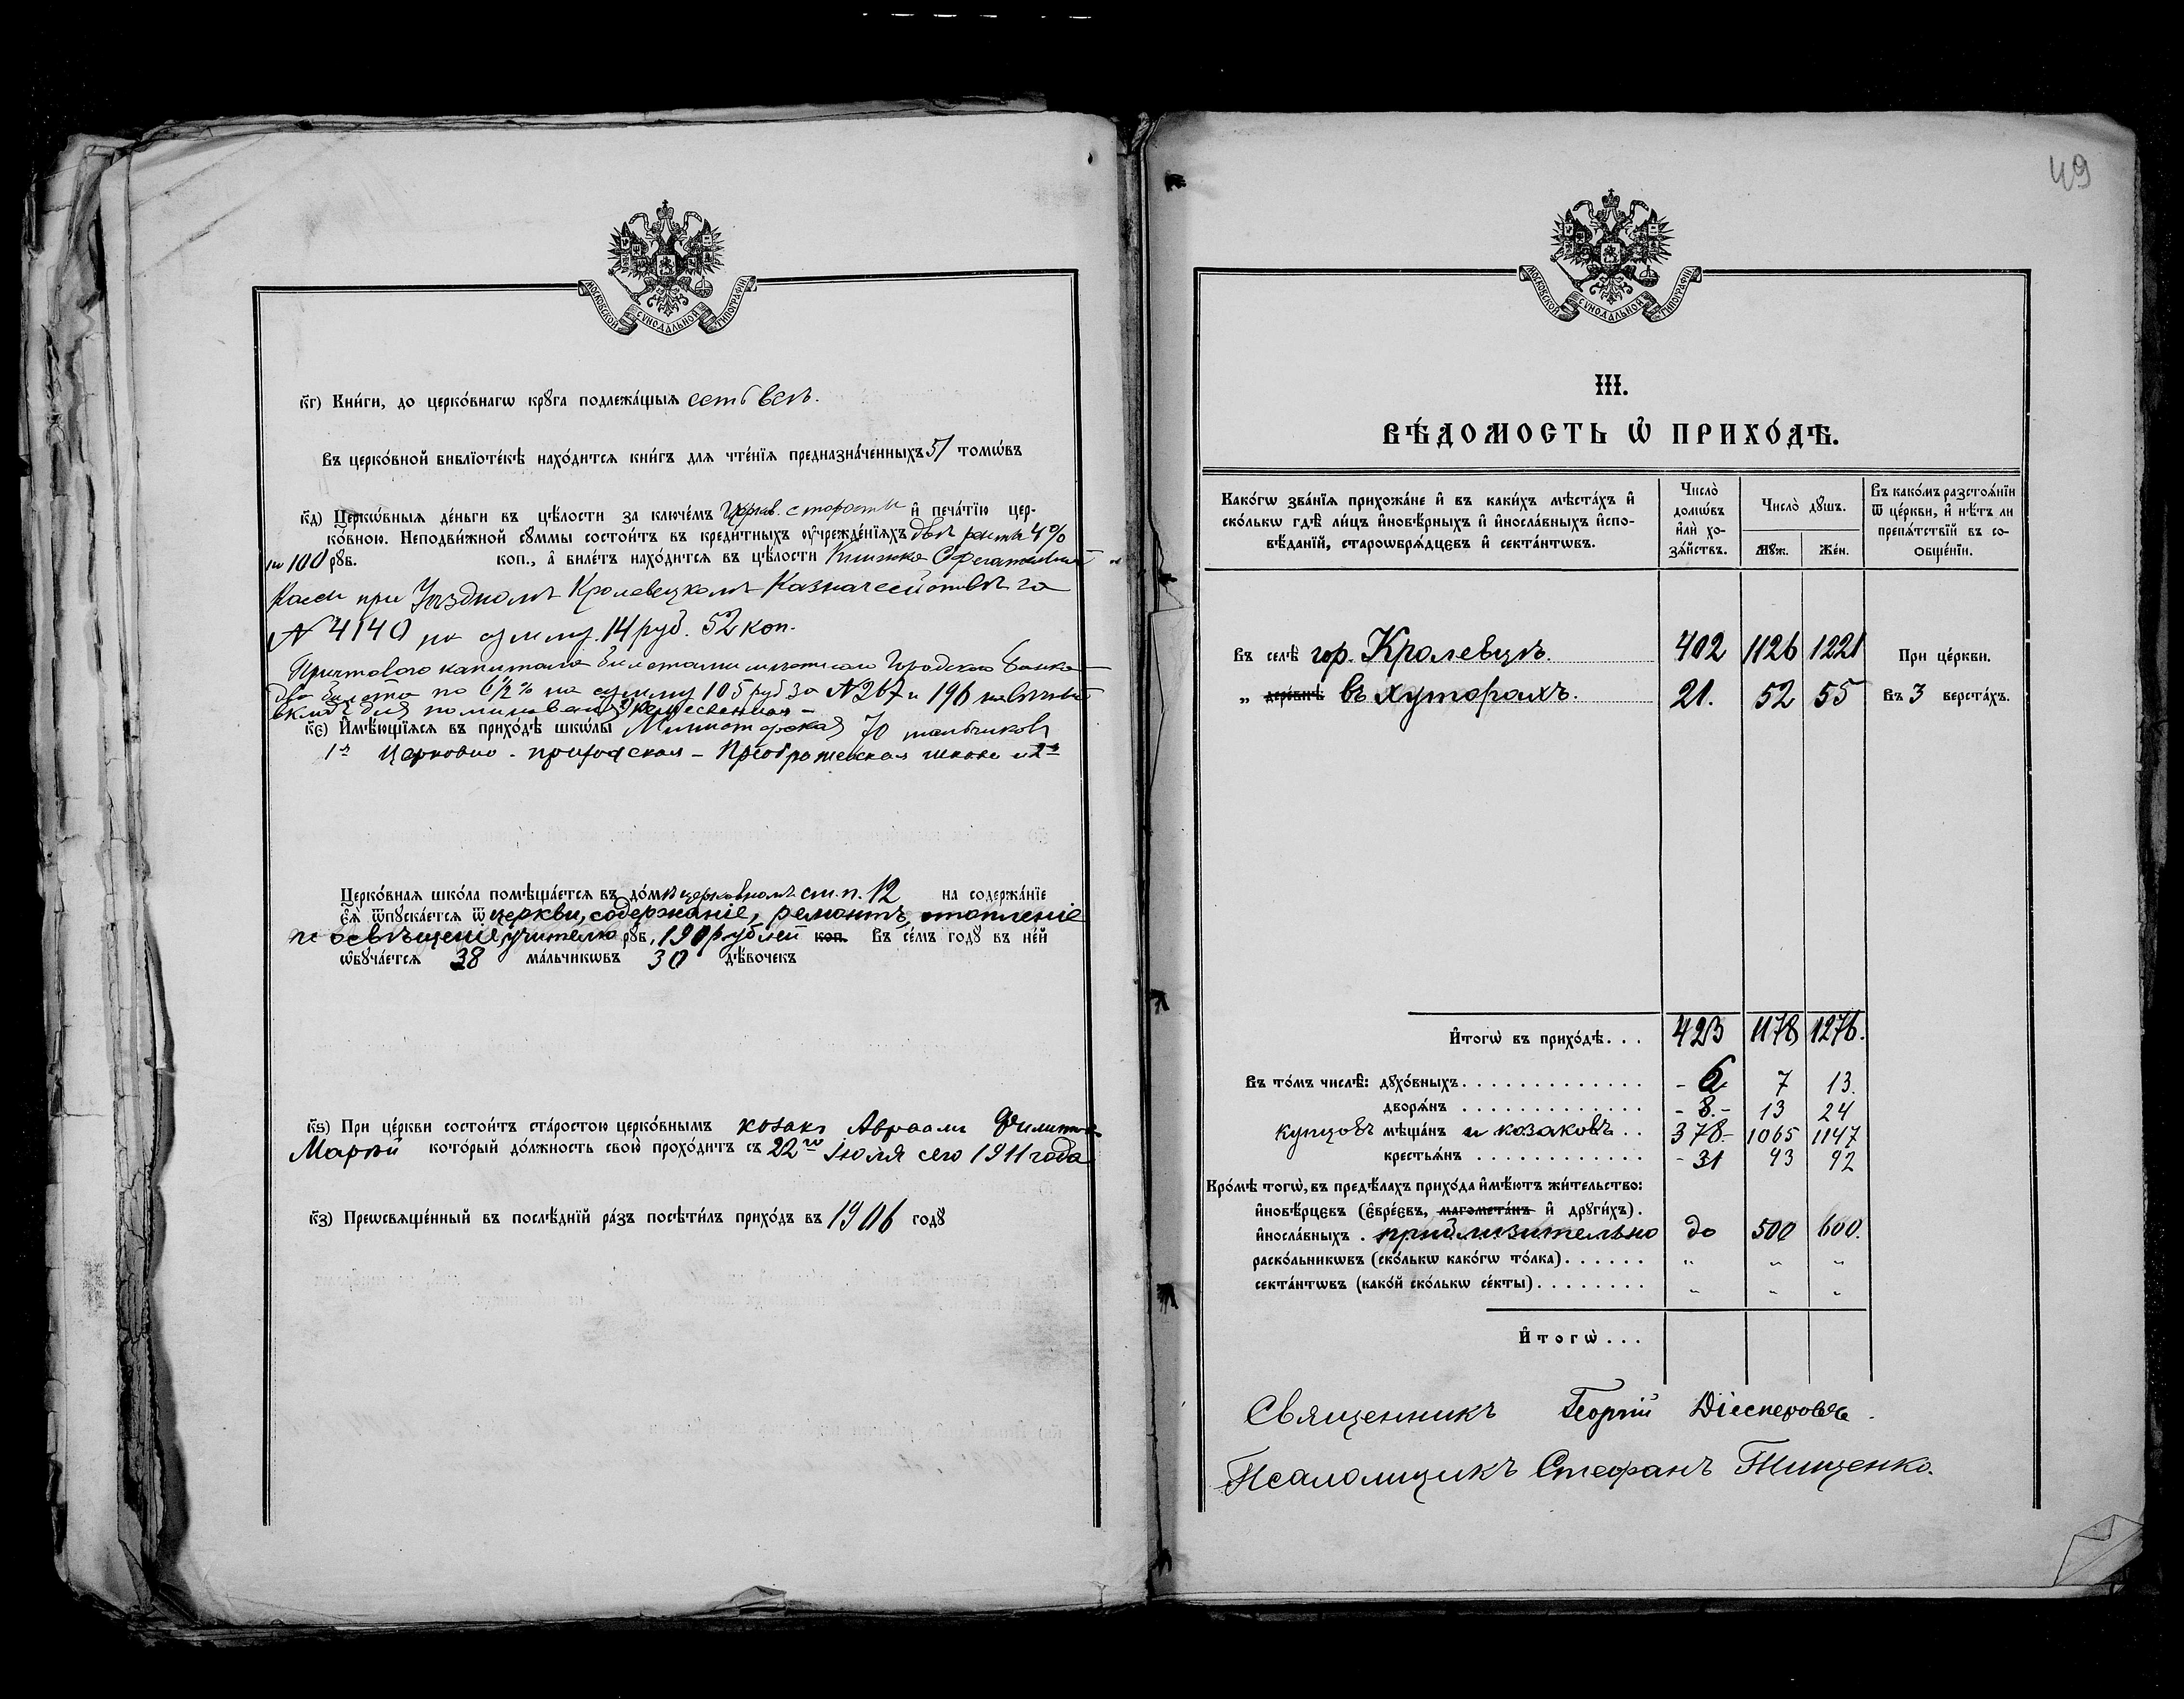 МОСКОВСКОЙ СѴНОДАЛЬНОЙ ТИПОГРАФІИ
к҃г) Кни́ги, до церко́внагѡ крꙋ́га подлежа́щыѧ есть всѣ.
Въ церко́вной библїоте́кѣ нахо́дитсѧ кни́гъ длѧ чте́нїѧ предназна́ченныхъ 51 томѡ́въ
к҃д) Церкѡ́вныѧ де́ньги въ цѣ́лости за ключе́мъ Церков. старосты и҆ печа́тїю цер-
ко́вною. Неподви́жной сꙋ́ммы состои́тъ въ креди́тныхъ оу҆чрежде́нїѧхъ двѣ ренты 4%
по 100 рꙋб. коп., а҆ биле́тъ нахо́дитсѧ въ цѣ́лости Книжка Сберегательной
Кассы при Уѣздномъ Кролевецкомъ Казначействѣ за
№ 4140 на сумму 14 руб. 52 коп.
Причтового капитала билетами мѣстнаго Городского Банка
два билета по 6½% на сумму 105 руб за № 267 и 196 на вѣчный
вкладъ для поминовенія
к҃є) И҆мѣ́ющїѧсѧ въ прихо́дѣ шкѡ́лы Министерская 70 мальчиковъ
1я Церковно-приходская - Преображенская школа и 2я
Церко́внаѧ шко́ла помѣща́етсѧ въ до́мѣ церковномъ ст. п. 12 на содержа́нїе
є҆ѧ̀ ѿпꙋска́етсѧ ѿ церкви, содержаніе, ремонтъ, отопленіе
и освѣщеніе, учителю рꙋб. 190 рублей коп. Въ се́мъ годꙋ̀ въ не́й
ѡ҆бꙋча́етсѧ 38 ма́льчикѡвъ 30 дѣ́вочекъ
к҃ѕ) При це́ркви состои́тъ ста́ростою церко́внымъ козакъ Авраамъ Филиппов
Марзій кото́рый до́лжность свою̀ прохо́дитъ съ 22го Іюля сего 1911 года
к҃з) Преѡсвѧще́нный въ послѣ́днїй ра́зъ посѣти́лъ прихо́дъ въ 1906 годꙋ̀
49
МОСКОВСКОЙ СѴНОДАЛЬНОЙ ТИПОГРАФІИ
III.
ВѢ́ДОМОСТЬ Ѡ҆ ПРИХО́ДѢ.
Како́гѡ зва́нїѧ прихожа́не и҆ въ каки́хъ мѣста́хъ и҆
ско́лькѡ гдѣ̀ ли́цъ и҆новѣ́рныхъ и҆ и҆носла́вныхъ и҆спо-
вѣ́данїй, староѡбрѧ́дцевъ и҆ секта́нтѡвъ.
Число̀
домѡ́въ
и҆лѝ хо-
зѧ́йствъ.
Число̀ дꙋ́шъ.
Мꙋж. Же́н.
Въ како́мъ разстоѧ́нїи
ѿ це́ркви, и҆ нѣ́тъ ли
препѧ́тствїй въ со-
ѻбще́нїи.
Въ селѣ̀ гор. Кролевцѣ. 402 1126 1221 При це́ркви.
„ дере́внѣ въ хуторахъ. 21. 52 55 Въ 3 верста́хъ.
И҆тогѡ̀ въ прихо́дѣ. . . 423 1178 1276.
Въ то́мъ числѣ̀: дꙋхо́вныхъ. . . . - 6 7 13.
дворѧ́нъ . . . . - 8.- 13 24
купцовъ мѣща́нъ и козаковъ . . 378- 1065 1147
крестьѧ́нъ . . . . - 31 93 92
Кро́мѣ тогѡ̀, въ предѣ́лахъ прихо́да и҆мѣ́ютъ жи́тельство:
и҆новѣ́рцевъ (є҆вре́євъ, магомета́нъ и҆ дрꙋги́хъ).
и҆носла́вныхъ . приблизительно до 500 600.
раско́льникѡвъ (ско́лькѡ како́гѡ то́лка). . . . . . „ „ „
секта́нтѡвъ (како́й ско́лькѡ се́кты). . . . . . . . „ „ „
И҆тогѡ̀ . . .
Священникъ Георгій Діесперовъ.
Псаломщикъ Стефанъ Тищенко.